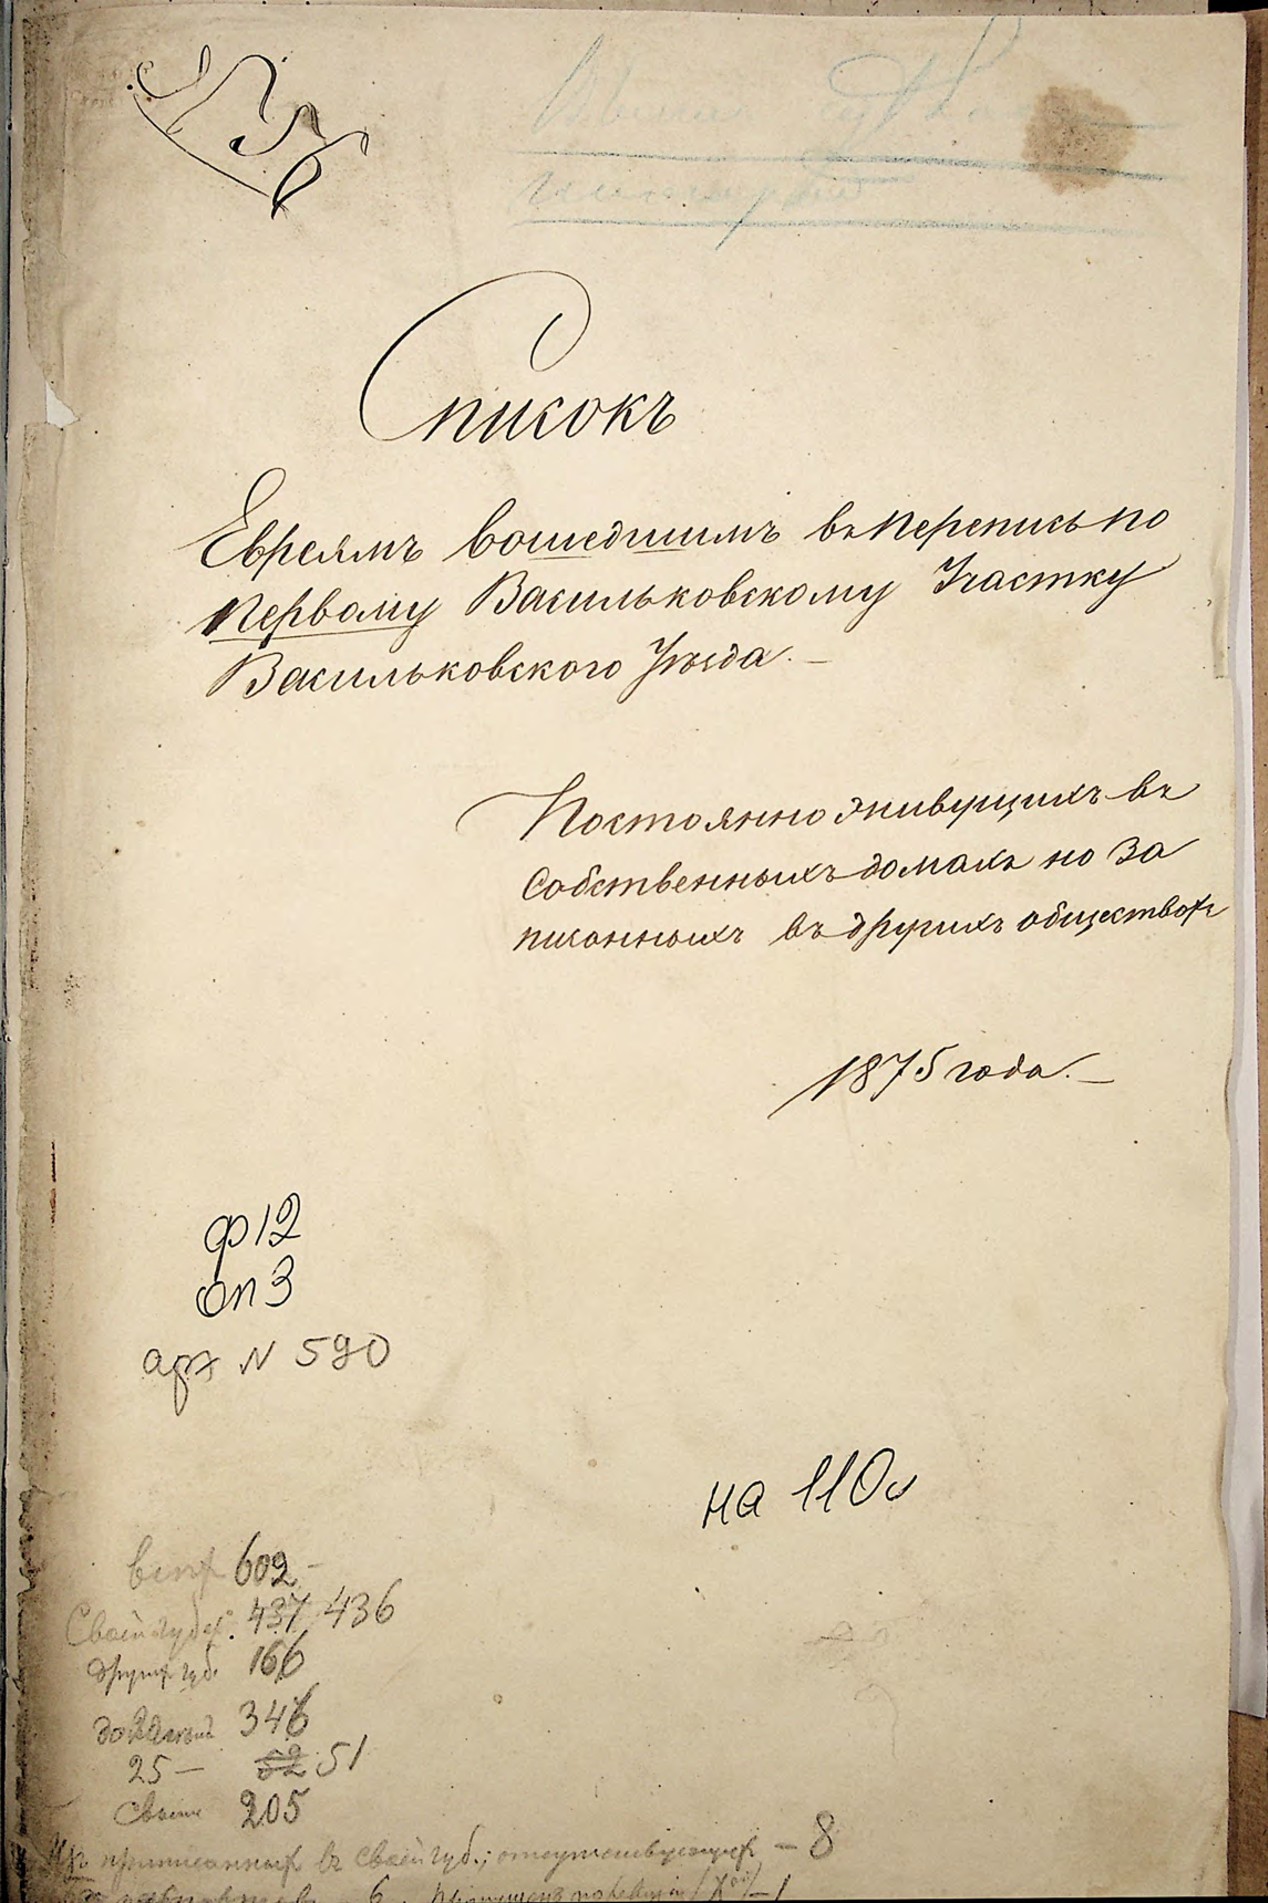 Списокъ
Евреямъ вошедшимъ въ перепись по
Первому Васильковскому Участку
Васильковского Уѣзда. –
Постоянно живущихъ въ
собственныхъ домахъ но за
писанныхъ въ другихъ обществахъ
1875 года. –
ф 12
оп 3
арх N 590
на 110 л
всѣхъ 602 –
Своей губ. 437 436
друг. губ. 166
346
25 – 52 51
свыше 205
приписанныхъ въ своей губ.; отсутствующихъ – 8
6